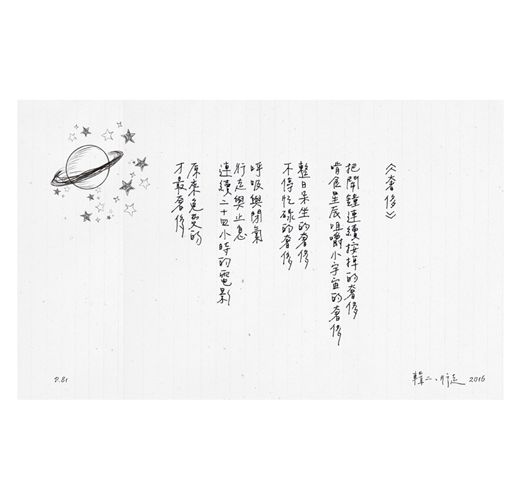 《奢侈》
把鬧鐘連續按掉的奢侈
嚐食星辰咀嚼小宇宙的奢侈
整日呆坐的奢侈
不停忙碌的奢侈
呼吸與閉氣
行走與止息
連續二十四小時的電影
原來免費的
才最奢侈
P.81
輯二、行走 2016